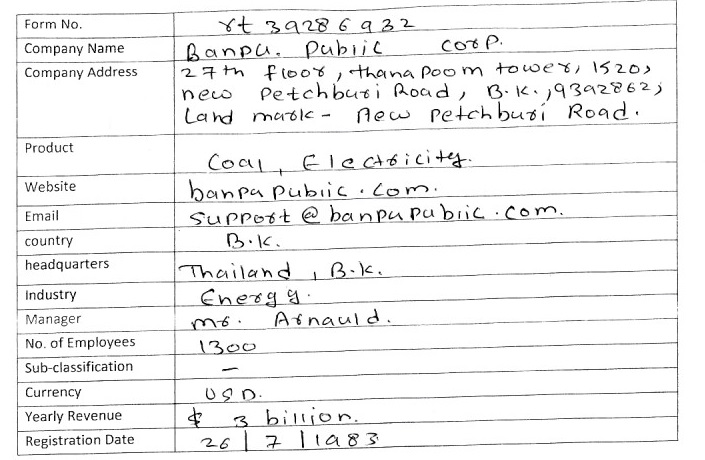 Form No. rt 39286932
Company Name Banpu. Public corp.
Company Address 27th floor, thana poom tower, 1520,
new Petchburi Road, B.K., 9392862,
Land mark - New Petchburi Road.
Product Coal, Electricity.
Website banpapubiic.com.
Email support@banpupubiic.com.
country B.K.
headquarters Thailand, B.K.
Industry Energy.
Manager mr. Arnauld.
No. of Employees 1300
Sub-classification –
Currency USD.
Yearly Revenue $ 3 billion.
Registration Date 26|7|1983